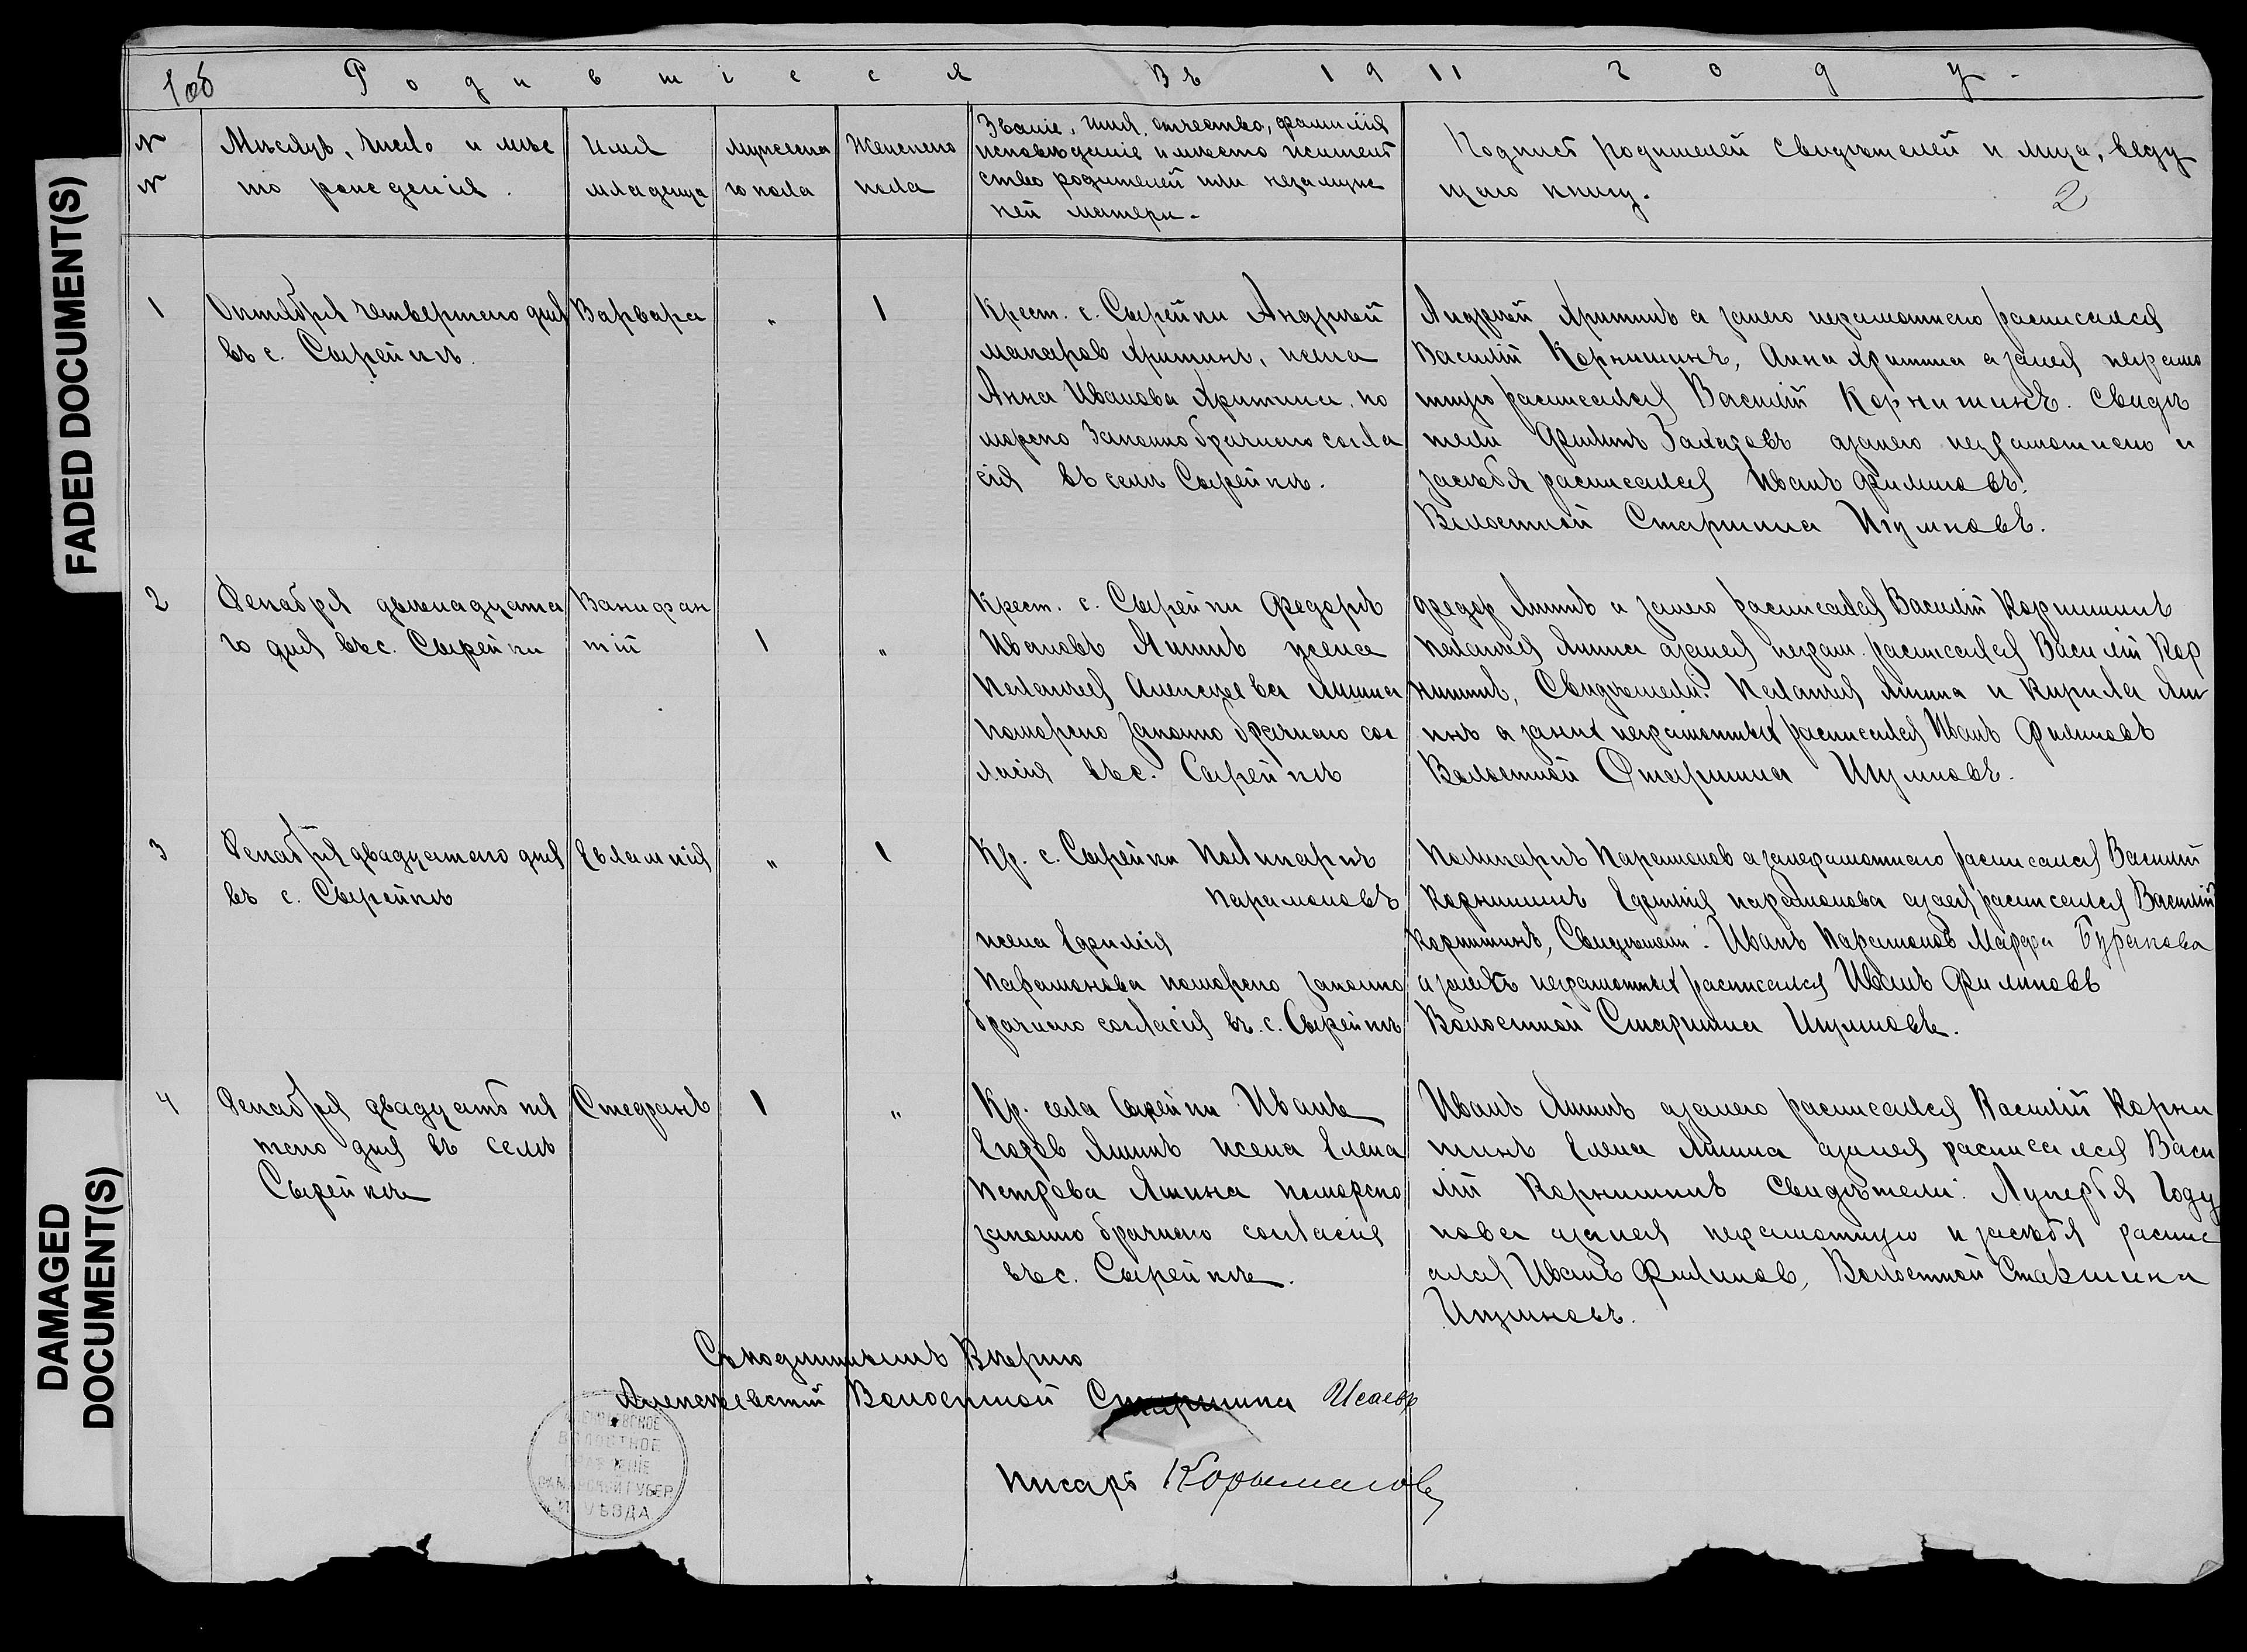 FADED DOCUMENT(S)
DAMAGED DOCUMENT(S)
Родившіеся въ 1911 году.
№ №
Мѣсяцъ, число и мѣс
то рожденія.
Имя
младенца
мужска
го пола
Женскаго
пола
Званіе, имя, отчество, фамилія
исповѣданіе и мѣсто жительст
ство родителей или незамуж
ней матери.
Подпись родителей свидѣтелей и лица, веду
щаго книгу.
2
1
Октября четвертаго дня
въ с. Сырейкѣ.
Варвара
„
1
Крест. с. Сырейки Андрей
Макаров Яритинъ, жена
Анна Иванова Яритина, по
морско законно брачнаго согла
сія въ селѣ Сырейкѣ.
Андрей Яритинъ а занего неграмотнаго расписался
Василій Корнишинъ, Анна Яритина а занея неграмо
тную расписался Василій Корнишинъ. Свидѣ
тели Филипъ Захаровъ азанего неграмотнаго и
засебя расписался Иванъ Филиповъ.
Волостной Старшина Игумновъ.
2
Декабря двенадцата
го дня въ с. Сырейки
Ванифан
тій
1
„
Крест. с. Сырейки Федоръ
Ивановъ Яшинъ жена
Пелагея Алексѣева Яшина
поморско законно брачнаго сог
ласія въ с. Сырейкѣ
Федор Яшинъ а занего расписался Василій Корнишинъ
Пелагея Яшина азанея неграм. расписался Василій Кор
нишинъ, Свидѣтели: Пелагея Яшина и Кирила Яши
нъ а заних неграмотных расписался Иванъ Филиповъ
Волостной Старшина Игумновъ.
3
Декабря двадцатаго дня
въ с. Сырейкѣ
Евлампія
„
1
Кр. с. Сырейки Поликарпъ
Парамоновъ
жена Ефимія
Парамонова поморско законно
брачнаго согласія въ с. Сырейкѣ
Поликарпъ Парамонов а занеграмотнаго расписался Василій
Корнишинъ Ефимія парамонова азаея расписался Василій
Корнишинъ, Свидѣтели: Иванъ Парамонов Марфа Буракова
а неграмотных расписался Иванъ Филиповъ
Волостной Старшина Игумновъ.
4
Декабря двадцать пя
таго дня въ селѣ
Сырейкѣ
Стефанъ
1
„
Кр. села Сырейки Иванъ
Егоров Яшинъ жена Елена
Петрова Яшина поморско
законно брачнаго согласія
въ с. Сырейкѣ.
Иванъ Яшинъ азанего расписался Василій Корни
шинъ Елена Яшина азанея расписался Васи
лій Корнишинъ Свидѣтели: Лукерья Году
нова азанея неграмотную и засебя распис
ался Иванъ Филипов, Волостной Старшина
Игумновъ.
Съ подлиннымъ Вѣрно
Алексѣевскій Волостной Старшина Исаевъ
Писарь
АЛЕКСѢЕВСКОЕ
ВОЛОСТНОЕ
ПРАВЛЕНІЕ
САМАРСКОЙ ГУБЕР.
И УѢЗДА